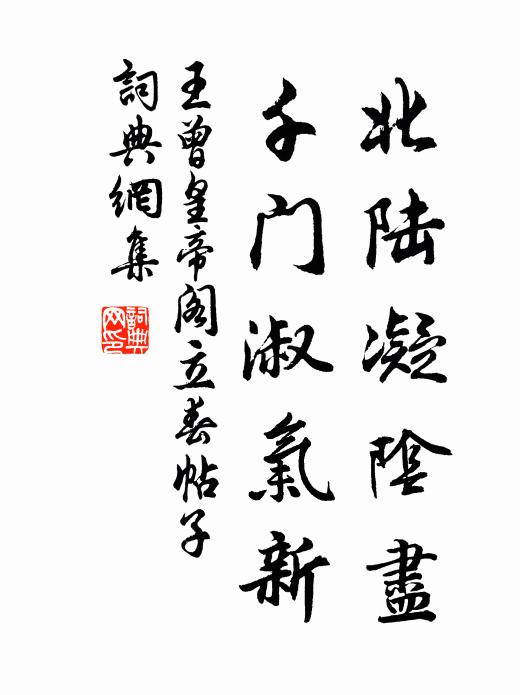 北陆凝陰盡
千门淑氣新
王曾皇帝阁立春帖子
詞典網集
詞典网印